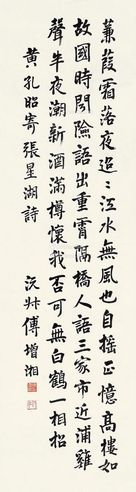 蒹葭霜落夜迢々江水無風也自搖正憶高樓如
故國時聞險語出重霄隔橋人語三家市近浦雞
聲半夜潮新酒滿樽懷我否可無白鶴一相招
黃孔昭寄張星湖詩
沅叔傅增湘